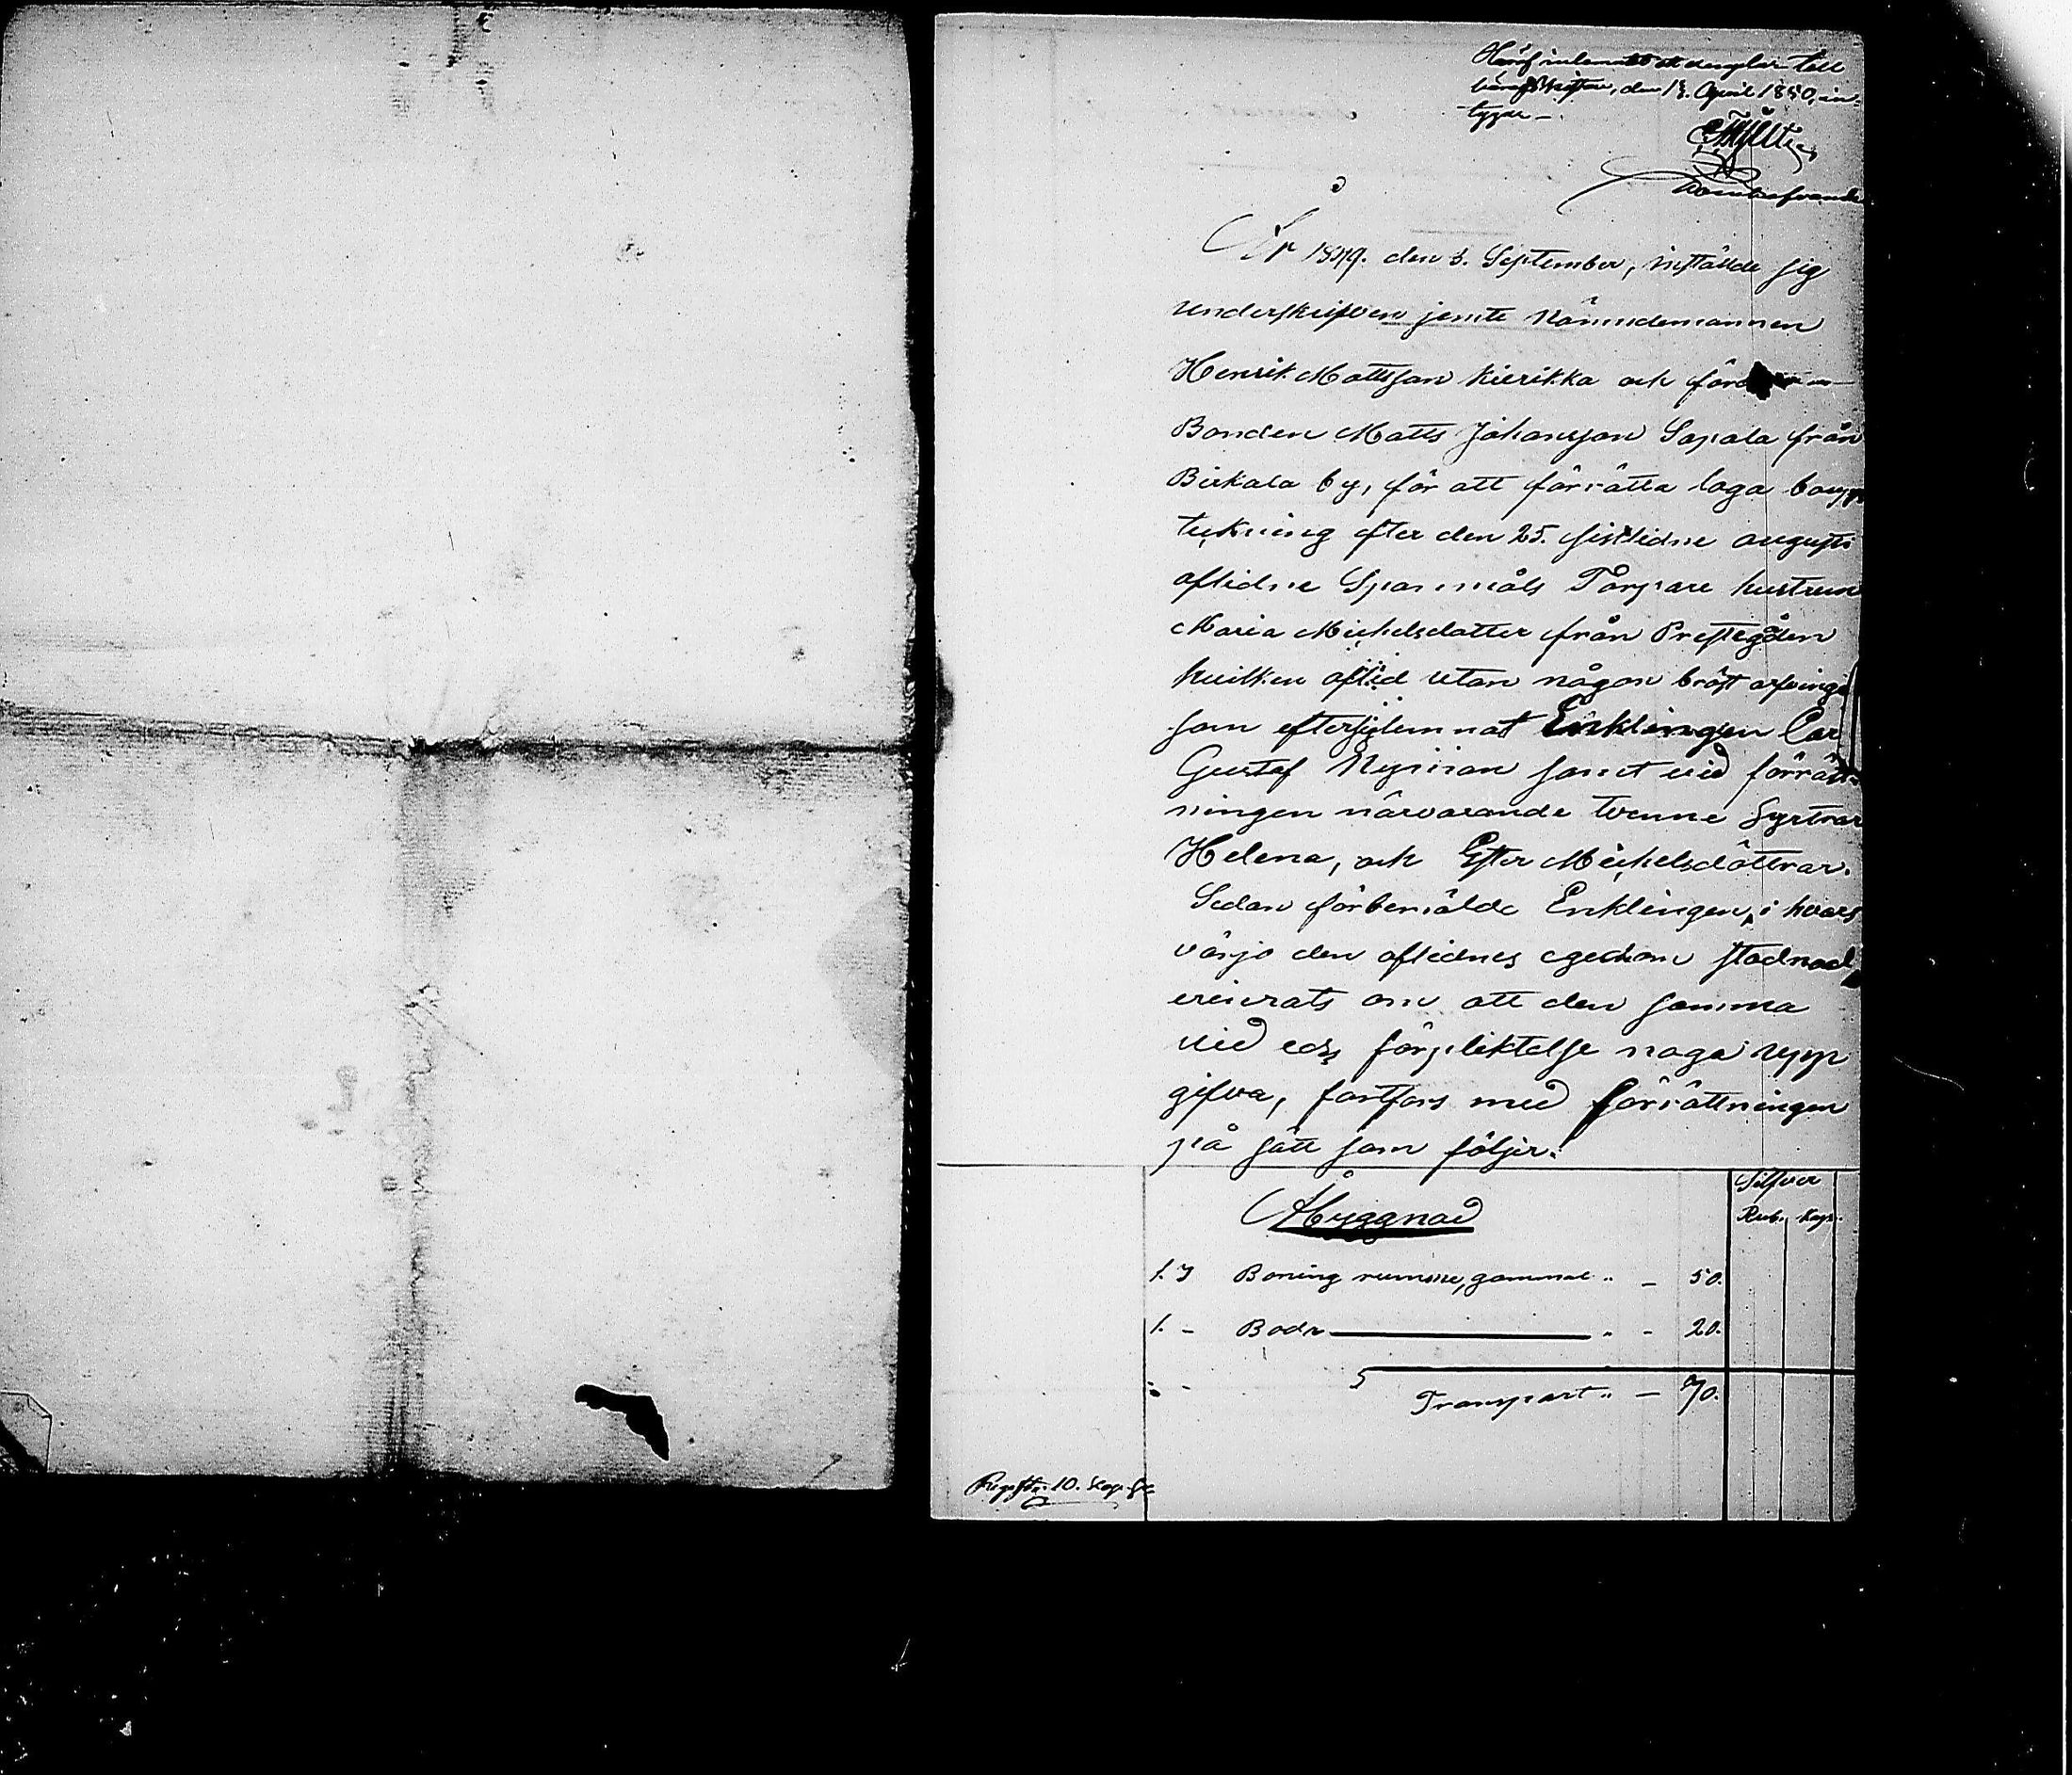 till
den 13. April 1850, in-
tygar
År 1849. den 3. September, instälde sig
underskrifven jemte Nämndemannen
Henrik Mattsson Kierikka och
Bonden Matts Johansson Sapala från
Birkala by, för att förrätta laga boupp
teckning efter den 25. sistlidne augusti
aflidne Spanmåls Torpare hustrun
Maria Michelsdotter från Prestegården
hvilken aflid utan någon bröst arfvinge
som efterlemnat Enklingen Carl
Gustaf Nyman samt vid förrätt-
ningen närvarande tvenne systrar
Helena, och Ester Michelsdöttrar.
Sedan förbemälde Enklingen, i hvars
värjo den aflidnes egedom stadnad,
erinrats om att den samma
vid eds förpliktelse noga upp
gifva, fortfors med förrättningen
på sätt som följer:
Silfver
Åbyggnad Rub. Kop.
1. Boning rumme, gammal " – 50.
1. – Bod " – 20.
Transport " – 70.
Registr. 10. Kop. Sr